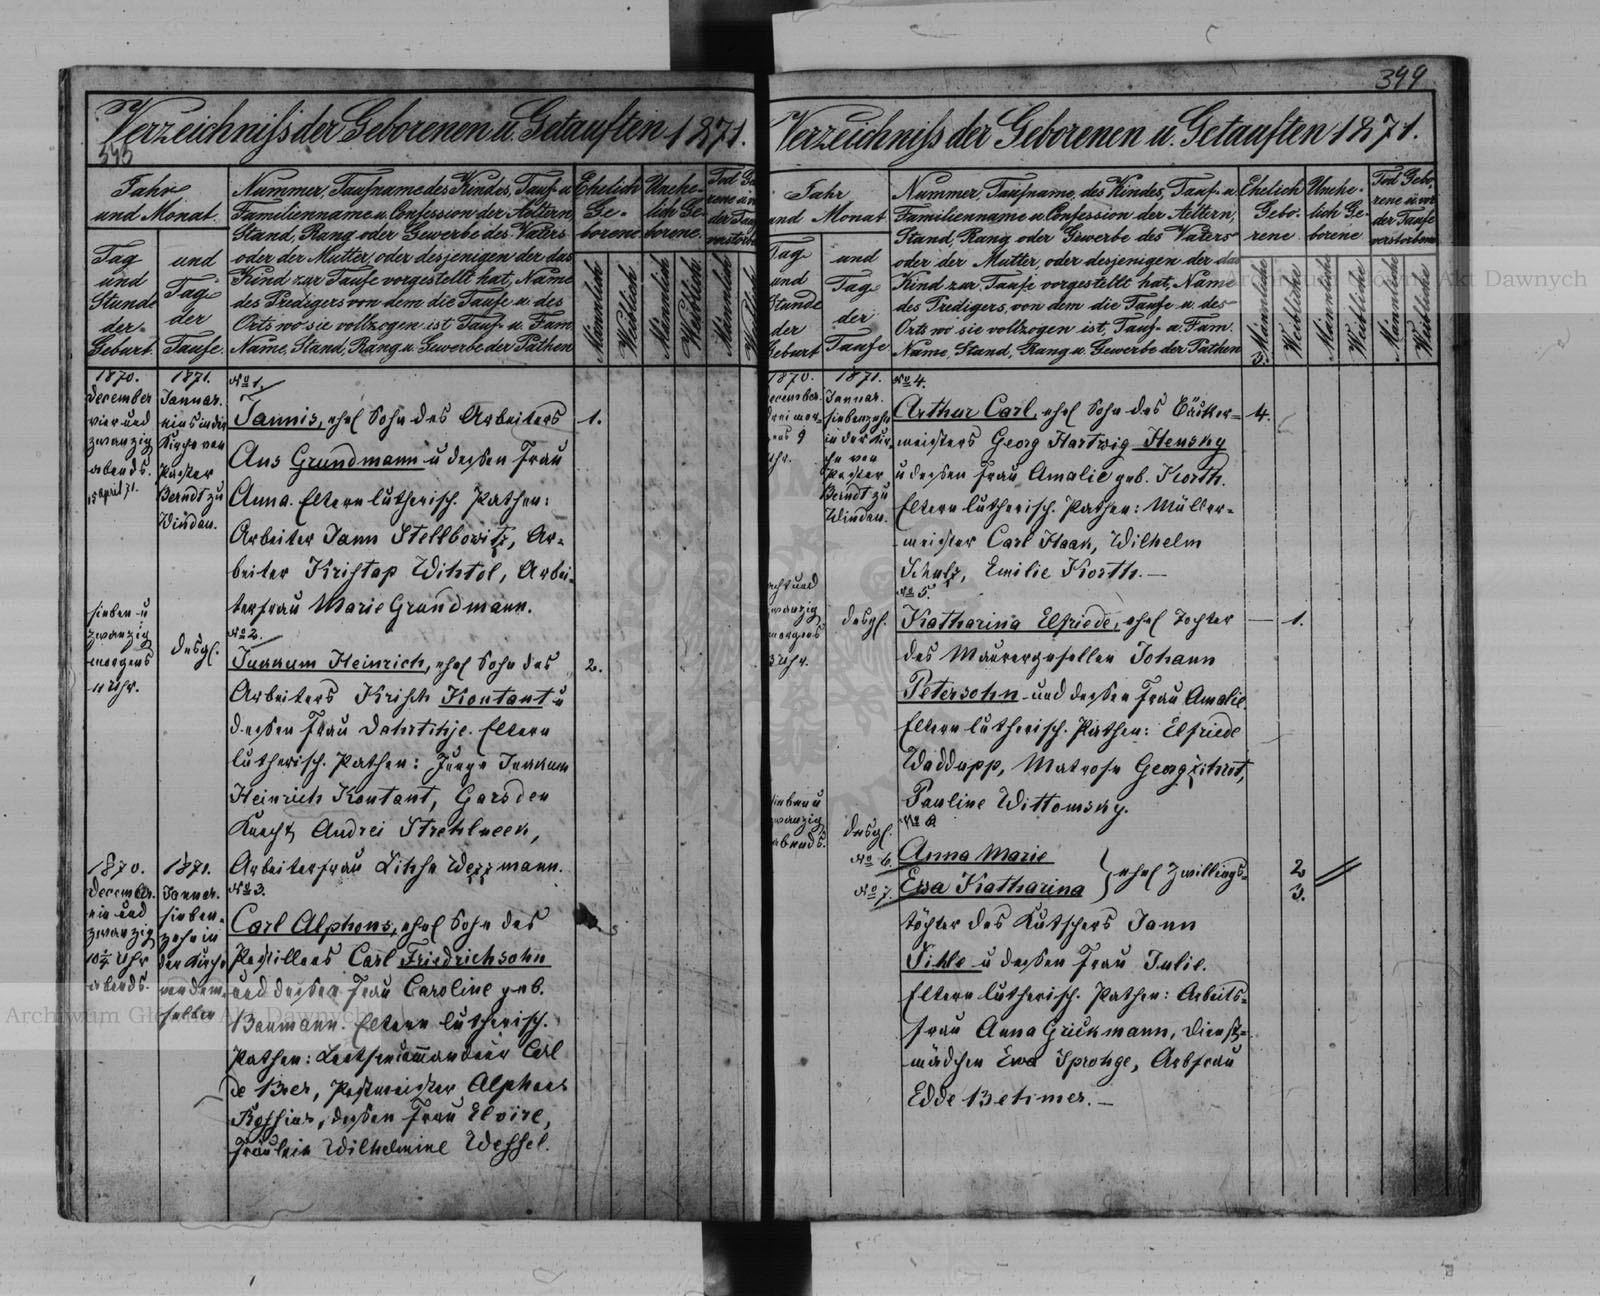 Verzeichniß der Geborenen u. Getauften 1871.
Jahr
und Monat
Tag
und
Stunde
der
Geburt.
und
Tag
der
Taufe.
Nummer, Taufname des Kindes, Tauf- u
Familienname u. Confession der Aeltern,
Stand, Rang oder Gewerbe des Vaters
oder der Mutter, oder desjenigen der das
Kind zur Taufe vorgestellt hat, Name
des Predigers von dem die Taufe u. des
Orts wo sie vollzogen ist, Tauf- u. Fam.
Name, Stand, Rang u. Gewerbe der Pathen
Ehelich
Ge-
borene
Männlich
Weiblich
Unehe-
lich Ge-
borene
Männlich
Weiblich
Männlich
1870.
December
vier und
zwanzig
abends.
15 April 71.
1871.
Januar.
eins in der
Kirche von
Pastor
Berndt zu
Windau.
No 1.
Jannis, ehel Sohn des Arbeiters
Ans Grundmann u dessen Frau
Anna. Eltern lutherisch. Pathen:
Arbeiter Jann Stellbowitz, Ar-
beiter Kristap Wihtol, Arbei-
terfrau Marie Grundmann.
1.
sieben u
zwanzig
morgens
11 Uhr.
desgl.
No 2.
Heinrich, ehel Sohn des
Arbeiters Krisch Kontant u
dessen Frau Dahrtihje. Eltern
lutherisch. Pathen: Junge
Heinrich Kontant, Garsden
Knecht Andrei Strehlneek,
Arbeiterfrau Lihse
2.
1870.
December.
ein und
zwanzig
10¼ Uhr
abends.
1871.
Januar.
sieben-
zehn in
der Kirche
von dem-
selben
No 3.
Carl Alphons, ehel Sohn des
Carl Friedrichsohn
und dessen Frau Caroline geb.
Baumann. Eltern lutherisch.
Pathen: Lootsencommandeur Carl
de Bver, Postmeister Alphons
dessen Frau Elvire,
Fräulein Wilhelmine Wessel.
399
Verzeichniß der Geborenen u. Getauften 1871.
Jahr
und Monat
Tag
und
Stunde
der
Geburt
und
Tag
der
Taufe
Nummer, Taufname, des Kindes, Tauf- u.
Familienname u Confession der Aeltern,
Stand, Rang oder Gewerbe des Vaters
oder der Mutter, oder desjenigen der das
Kind zur Taufe vorgestellt hat, Name
des Predigers, von dem die Taufe u. des
Orts wo sie vollzogen ist, Tauf- u. Fam.
Name, Stand, Rang u. Gewerbe der Pathen
Ehelich
Gebo-
rene
Männliche
Weibliche
Unehe-
lich Ge-
borene
Männliche
Weibliche
Tod Gebo-
rene u. vor
der Taufe
verstorbene
Männliche
Weibliche
3.
1870.
December.
drei mor-
gens 9
Uhr.
1871.
Januar.
siebenzehn
in der Kir-
che von
Pastor
Berndt zu
Windau.
No 4.
Arthur Carl, ehel Sohn des Bäcker-
meisters Georg Hartwig Hensky
u dessen Frau Amalie geb. Korth.
Eltern lutherisch. Pathen: Müller-
meister Carl Haak, Wilhelm
Schulz, Emilie Korth.—
4.
acht und
zwanzig
morgens
3 Uhr.
desgl.
No 5.
Katharina Elfriede, ehel Tochter
des Maurergesellen Johann
Petersohn und dessen Frau Amalie.
Eltern lutherisch. Pathen: Elfriede
Waddapp, Matrose Georg
Pauline Wittomsky.
1.
sieben u
zwanzig
abends.
desgl.
No 6.
No 7.
Anna Marie
Ewa Katharina
ehel Zwillings-
töchter des Kutschers Jann
Sihle u dessen Frau Julie.
Eltern lutherisch. Pathen: Arbeits-
frau Anna Grickmann, Dienst-
mädchen Ewa Sprohge, Arbfrau
Edde Behmer.—
2
3.
Archiwum Główne Akt Dawnych
Archiwum Główne Akt Dawnych